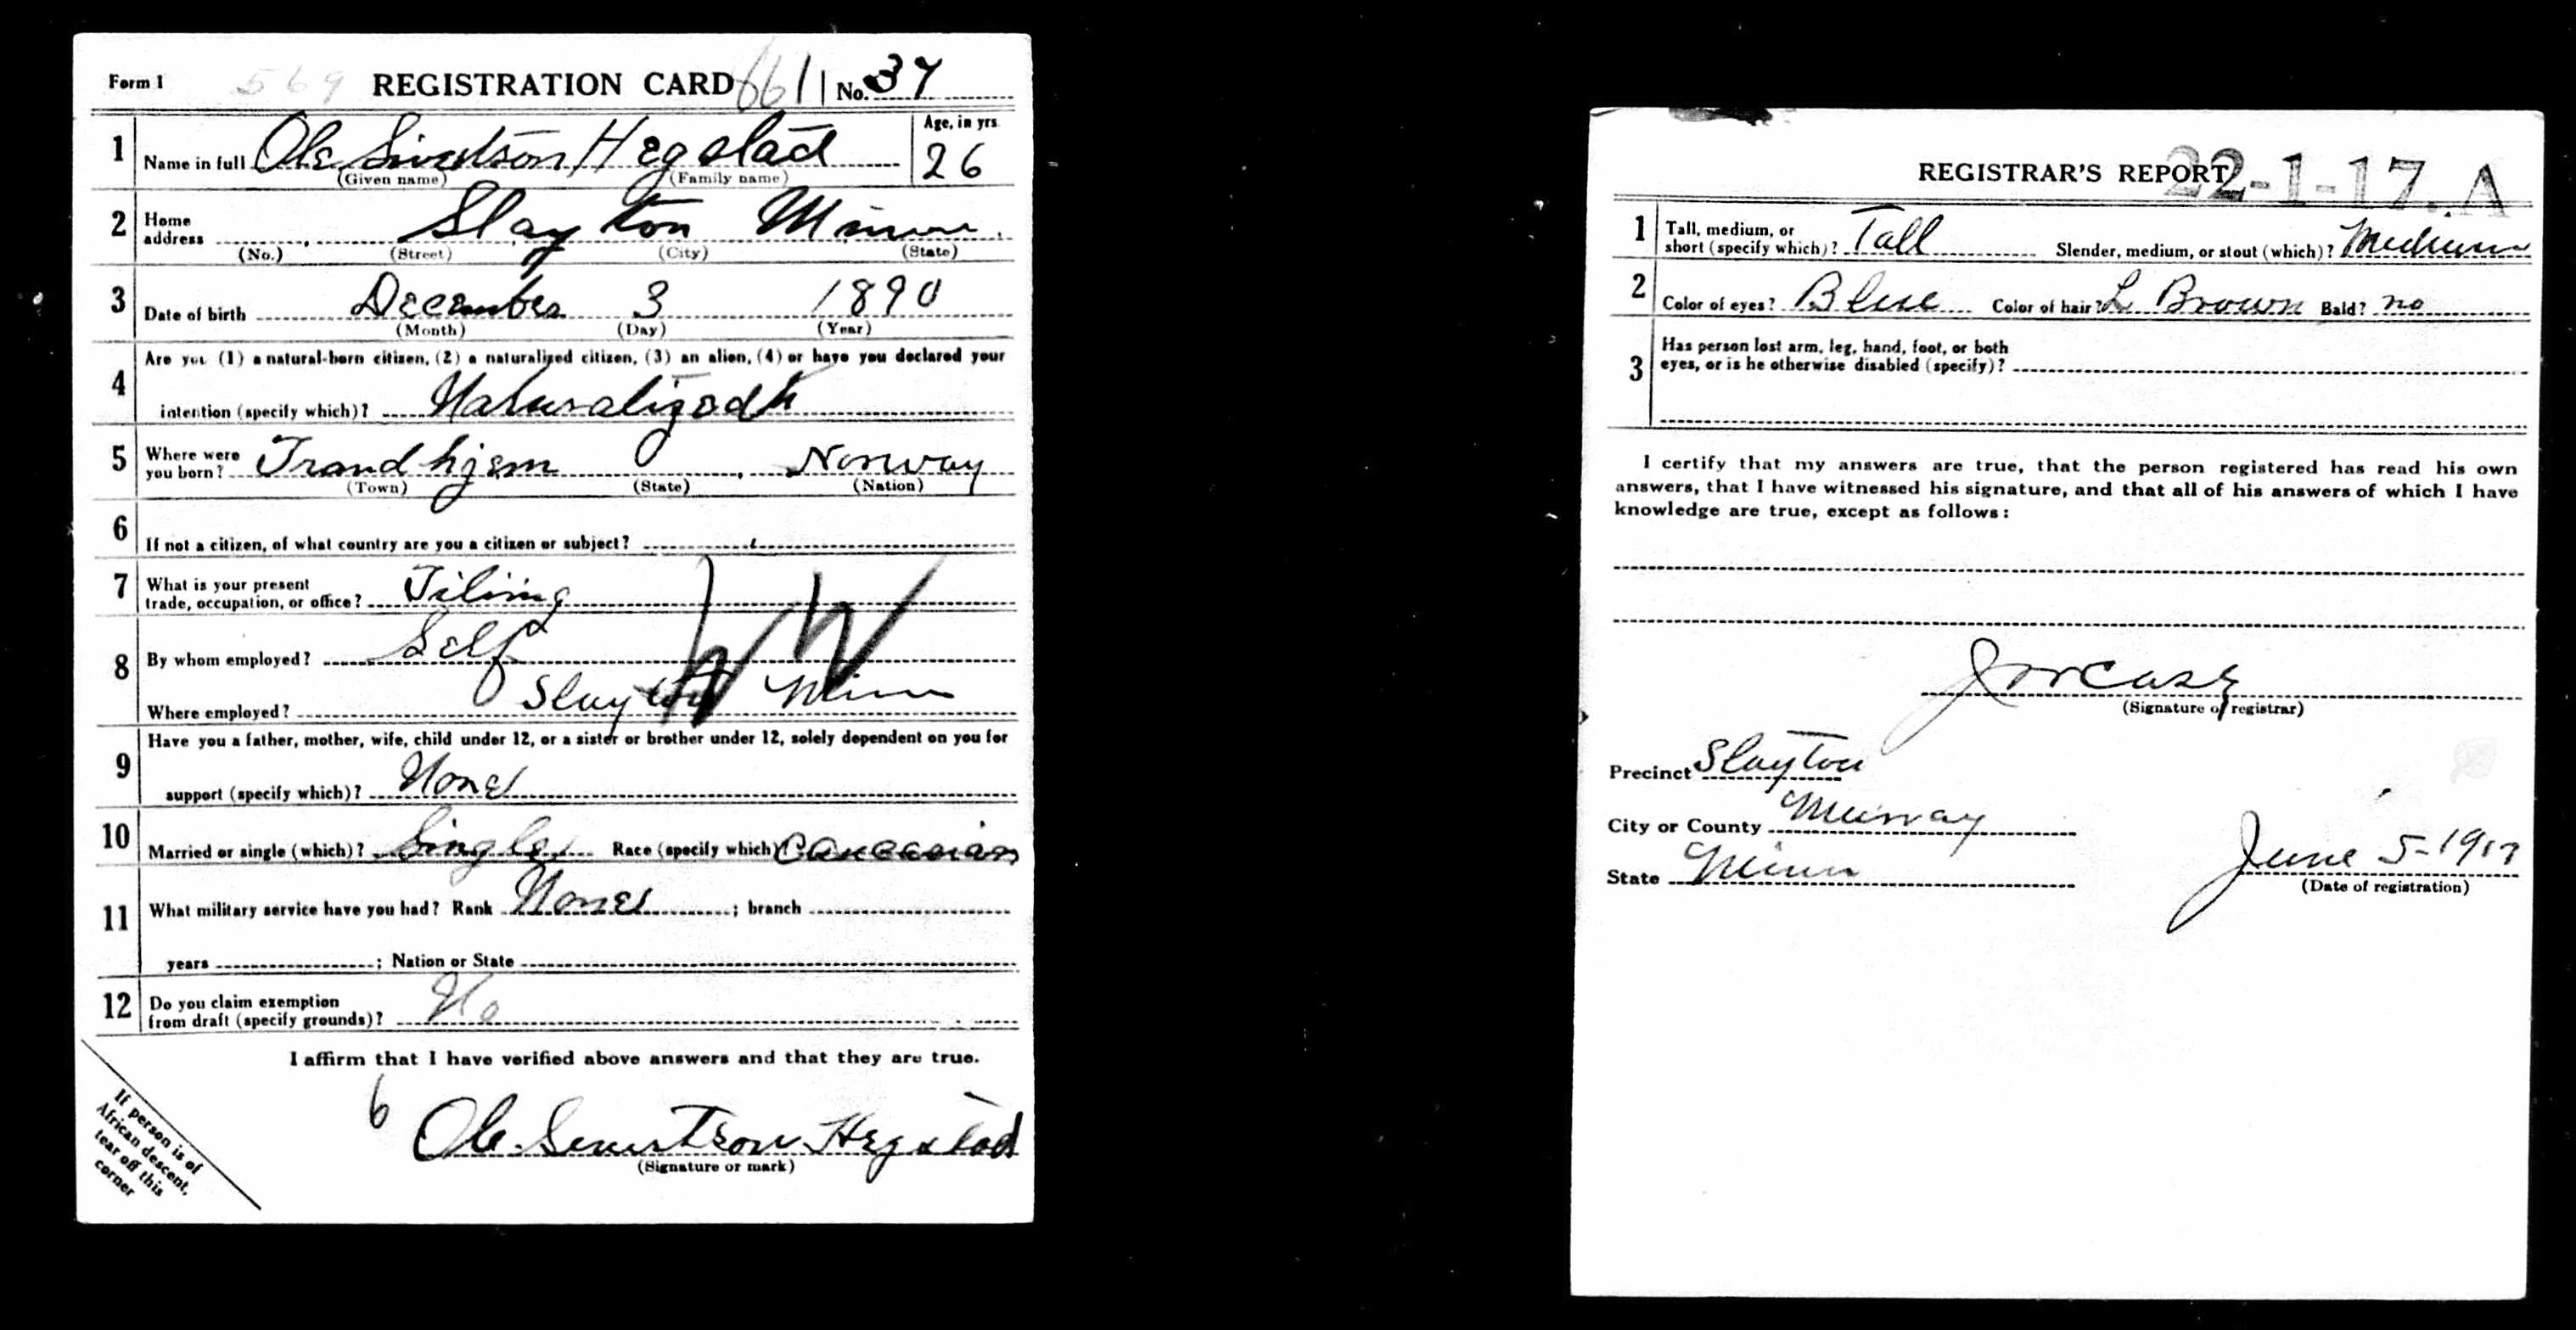 Form 1 569 REGISTRATION CARD 661 No. 37
1 Name in full Ole Sivertson Hegstad Age, in yrs. 26
(Given name) (Family name)
2 Home address Slayton Minn.
(No.) (Street) (City) (State)
3 Date of birth December 3 1890
(Month) (Day) (Year)
4 Are you (1) a natural-born citizen, (2) a naturalized citizen, (3) an alien, (4) or have you declared your
intention (specify which)? Naturalized
5 Where were you born? Trondhjem Norway
(Town) (State) (Nation)
6 If not a citizen, of what country are you a citizen or subject?
7 What is your present
trade, occupation, or office? Tiling
8 By whom employed? Self
Where employed? Slayton Minn
9 Have you a father, mother, wife, child under 12, or a sister or brother under 12, solely dependent on you for
support (specify which)? None
10 Married or single (which)? Single Race (specify which)? Caucasian
11 What military service have you had? Rank None ; branch
years ; Nation or State
12 Do you claim exemption
from draft (specify grounds)? No
I affirm that I have verified above answers and that they are true.
6
Ole Sivertson Hegstad
(Signature or mark)
If person is of
African descent,
tear off this
corner
REGISTRAR'S REPORT 22-1-17. A
1 Tall, medium, or
short (specify which)? Tall Slender, medium, or stout (which)? Medium
2 Color of eyes? Blue Color of hair? L Brown Bald? no
3 Has person lost arm, leg, hand, foot, or both
eyes, or is he otherwise disabled (specify)?
I certify that my answers are true, that the person registered has read his own
answers, that I have witnessed his signature, and that all of his answers of which I have
knowledge are true, except as follows:
(Signature of registrar)
Precinct Slayton
City or County Murray
State Minn June 5-1917
(Date of registration)